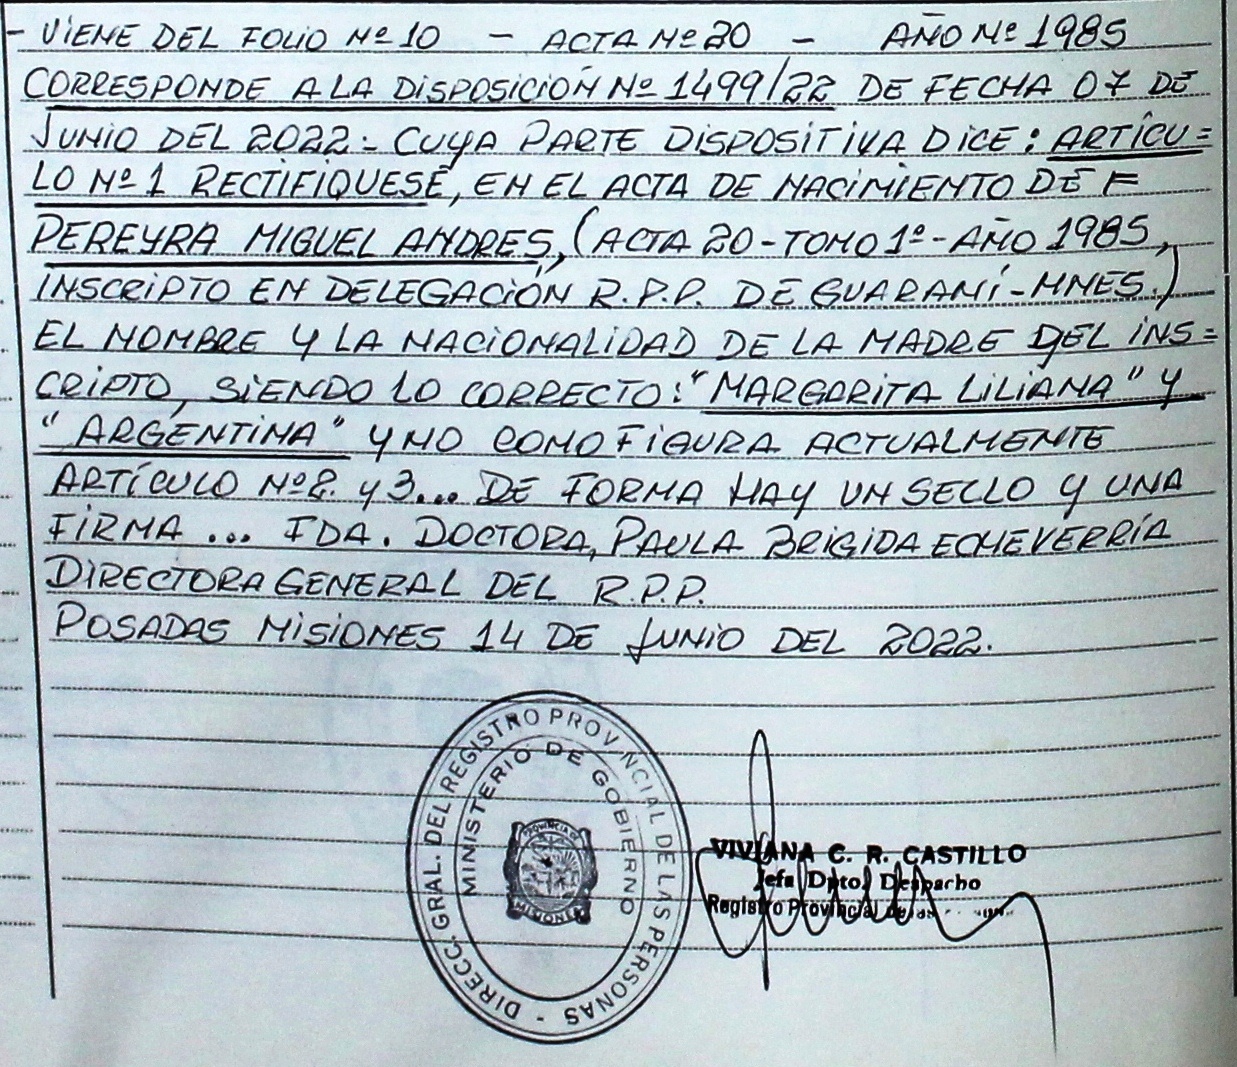 - VIENE DEL FOLIO Nº 10 - ACTA Nº 20 - AÑO Nº 1985
CORRESPONDE A LA DISPOSICIÓN Nº 1499/22 DE FECHA 07 DE
JUNIO DEL 2022- CUYA PARTE DISPOSITIVA DICE: ARTÍCU=
LO Nº 1 RECTIFIQUESE, EN EL ACTA DE NACIMIENTO DE =
PEREYRA MIGUEL ANDRES,, (ACTA 20-TOMO 1º-AÑO 1985,
INSCRIPTO EN DELEGACIÓN R.P.P. DE GUARANÍ-MNES.)
EL NOMBRE Y LA NACIONALIDAD DE LA MADRE DEL INS=
CRIPTO, SIENDO LO CORRECTO: "MARGARITA LILIANA" Y
"ARGENTINA" Y NO COMO FIGURA ACTUALMENTE
ARTÍCULO Nº 2. Y 3... DE FORMA HAY UN SELLO Y UNA
FIRMA ... FDA. DOCTORA, PAULA BRIGIDA ECHEVERRÍA
DIRECTORA GENERAL DEL R.P.P.
POSADAS MISIONES 14 DE JUNIO DEL 2022.
DIRECC. GRAL. DEL REGISTRO PROVINCIAL DE LAS PERSONAS -
MINISTERIO DE GOBIERNO
PROVINCIA DE
MISIONES
VIVIANA C. R. CASTILLO
Jefa Dpto. Despacho
Registro Provincial de las